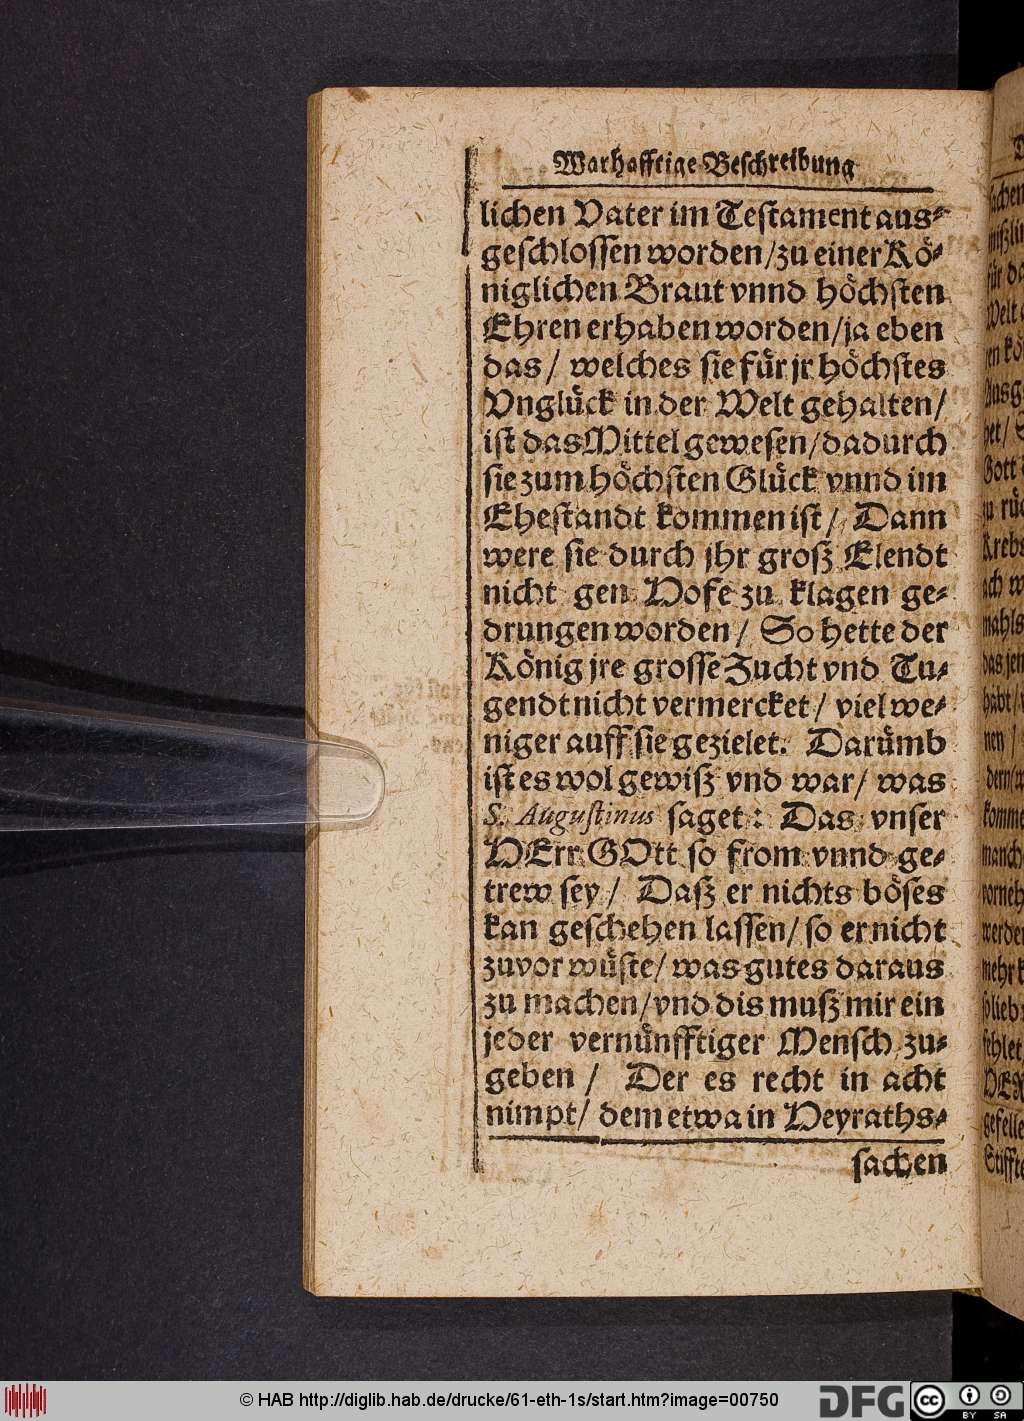 Warhafftige Beschreibung
lichen Vater im Testament aus⸗
geschlossen worden/zu einer Kö⸗
niglichen Braut vnnd höchsten
Ehren erhaben worden/ja eben
das/ welches sie für jr höchstes
Vnglück in der Welt gehalten/
ist das Mittel gewesen/dadurch
sie zum höchsten Glück vnnd im
Ehestandt kommen ist/ Dann
were sie durch jhr groß Elendt
nicht gen Hofe zu klagen ge⸗
drungen worden/ So hette der
König jre grosse Zucht vnd Tu⸗
gendt nicht vermercket/ viel we⸗
niger auff sie gezielet. Darümb
ist es wol gewiß vnd war/ was
S. Augustinus saget: Das vnser
HErr GOtt so from vnnd ge⸗
trew sey/ Daß er nichts böses
kan geschehen lassen/ so er nicht
zuvor wüste/ was gutes daraus
zu machen/vnd dis muß mir ein
jeder vernünfftiger Mensch zu⸗
geben/ Der es recht in acht
nimpt/ dem etwa in Heyraths⸗
sachen
© HAB http://diglib.hab.de/drucke/61-eth-1s/start.htm?image=00750
DFG
cc BY SA